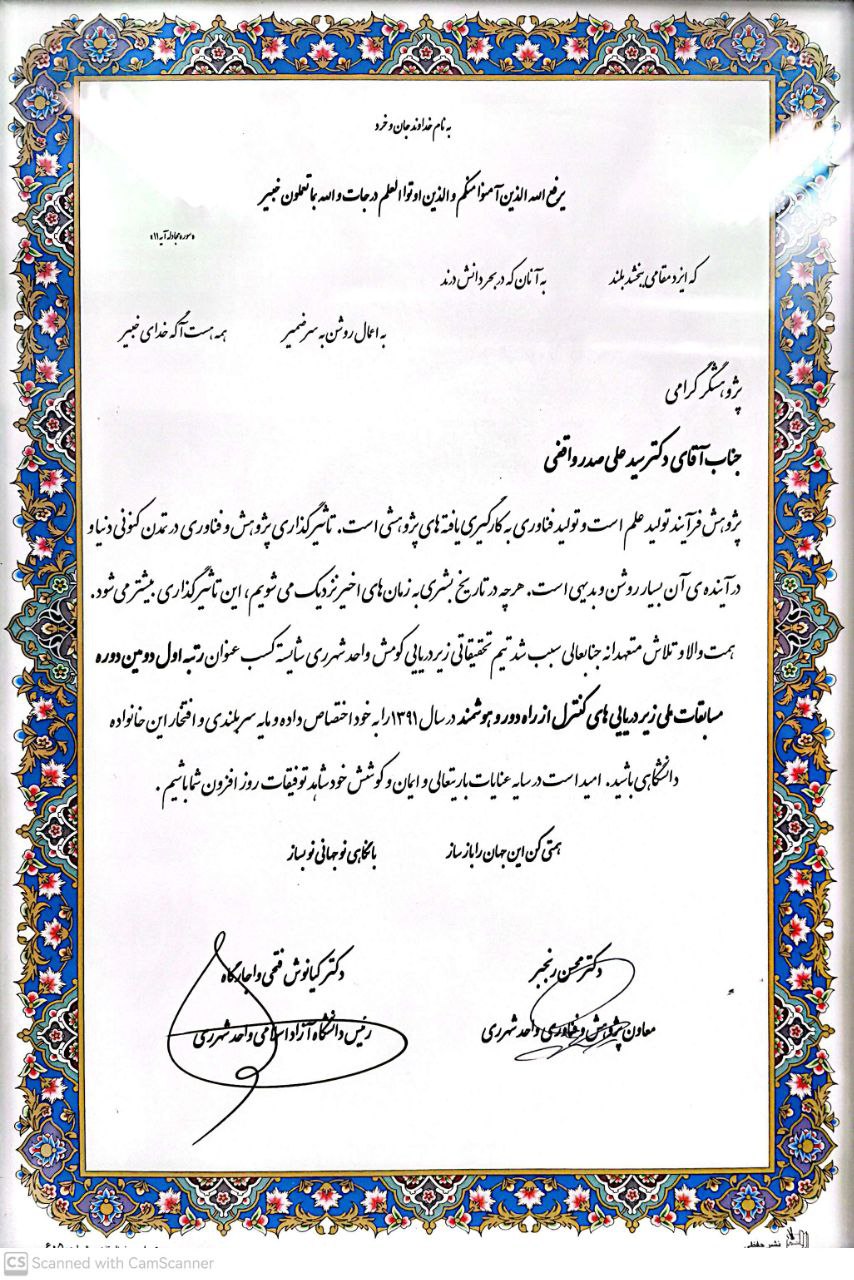 به نام خداوند جان و خرد
یرفع الله الذین آمنوا منکم والذین اوتوا العلم درجات والله بما تعملون خبیر
«سوره مجادله آیه ۱۱»
که ایزد مقامی ببخشد بلند به آنان که در بحر دانش درند
به اعمال روشن به سر ضمیر همه هست آگه خدای خبیر
پژوهشگر گرامی
جناب آقای دکتر سید علی صدر واقفی
پژوهش فرآیند تولید علم است و تولید فناوری به کارگیری یافته های پژوهشی است. تاثیرگذاری پژوهش و فناوری در تمدن کنونی دنیا و
در آینده ی آن بسیار روشن و بدیهی است. هرچه در تاریخ بشری به زمان های اخیر نزدیک می شویم، این تاثیرگذاری بیشتر می شود.
همت والا و تلاش متعهدانه جنابعالی سبب شد تیم تحقیقاتی زیردریایی کومش واحد شهرری شایسته کسب عنوان رتبه اول دومین دوره
مسابقات ملی زیردریایی های کنترل از راه دور و هوشمند در سال ۱۳۹۱ را به خود اختصاص داده و مایه سربلندی و افتخار این خانواده
دانشگاهی باشید. امید است در سایه عنایات باریتعالی و ایمان و کوشش خود شاهد توفیقات روز افزون شما باشیم.
همتی کن این جهان را باز ساز با نگاهی نو جهانی نو بساز
دکتر محسن رنجبر
معاون پژوهش و فناوری واحد شهرری
دکتر کیانوش فتحی واجارگاه
رئیس دانشگاه آزاد اسلامی واحد شهرری
CS Scanned with CamScanner